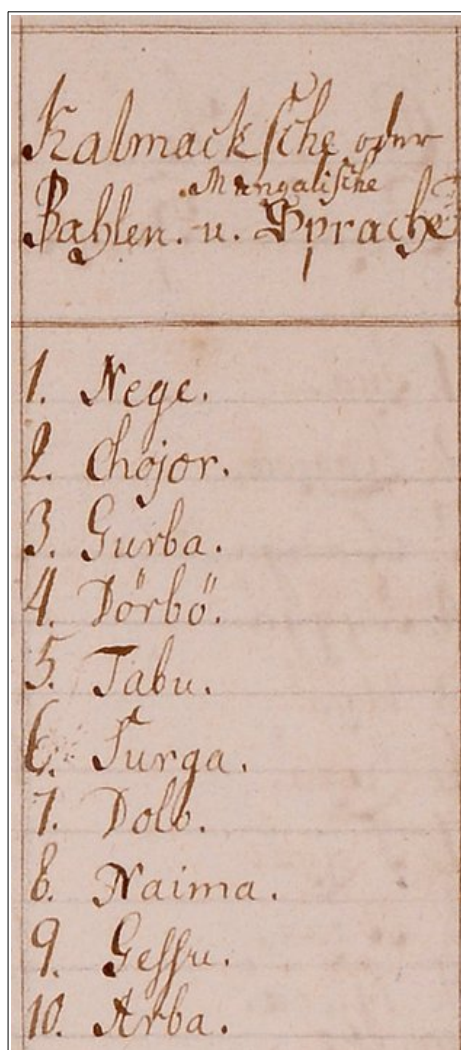 Kalmacksche oder
Mungalische
Zahlen. u. Sprache
1. Nege.
2. Chojor.
3. Gurba.
4. Dörbö.
5. Tabu.
6. Surga.
7. Dolo.
8. Naima.
9. Gessu.
10. Arba.